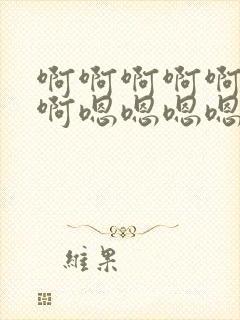 啊啊啊啊啊
啊嗯嗯嗯嗯
維果